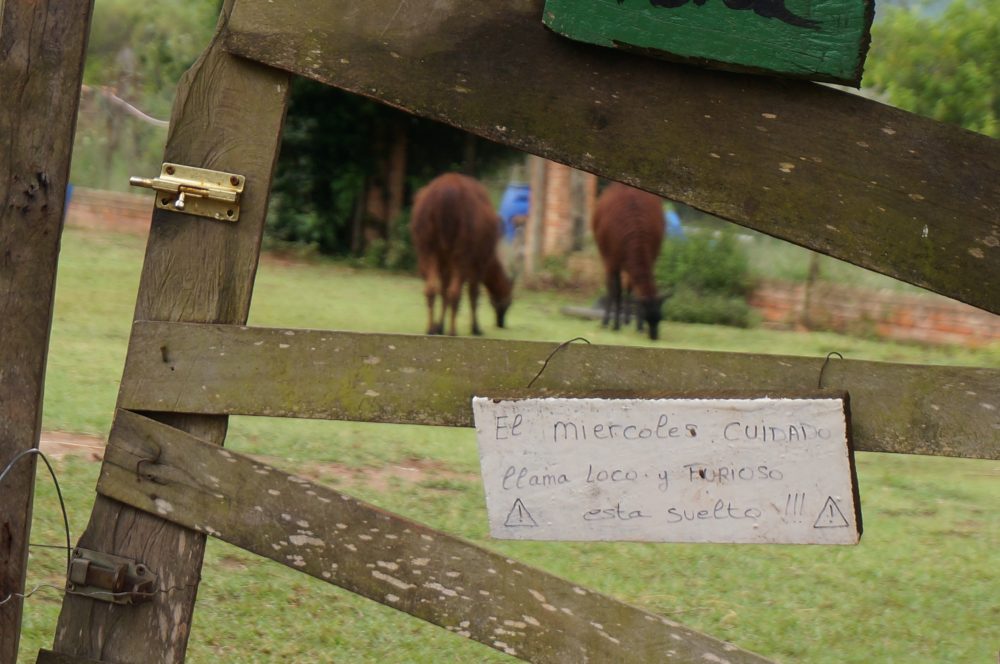 El miercoles CUIDADO
llama Loco y FURIOSO
esta suelto !!!